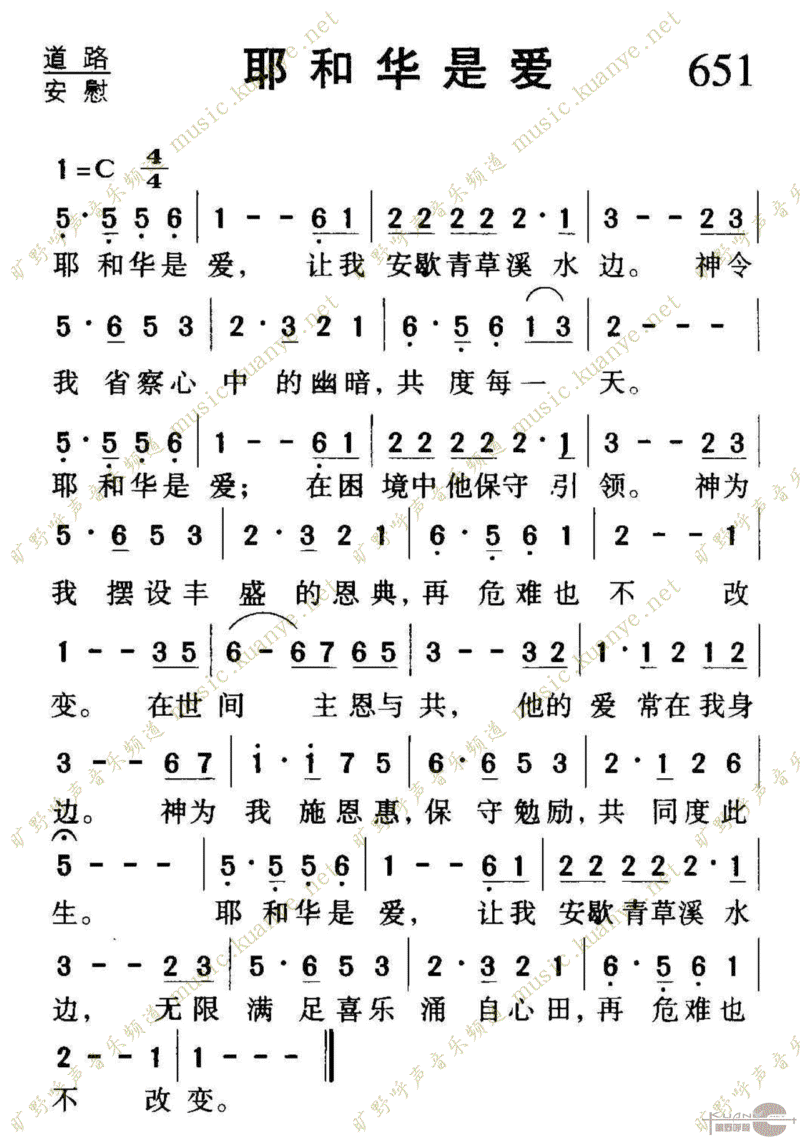 道路
安慰
耶和华是爱
651
1=C 4/4
5·5 5 6 | 1 - - 6 1 | 2 2 2 2 2 2 2·1 | 3 - - 2 3 |
耶 和华是 爱， 让我 安歇青草溪 水 边。 神令
5·6 5 3 | 2·3 2 1 | 6·5 6 1 3 | 2 - - - |
我 省察心 中 的幽暗,共 度每一 天。
5·5 5 6 | 1 - - 6 1 | 2 2 2 2 2 2·1 | 3 - - 2 3 |
耶 和华是 爱； 在困 境中他保守 引 领。 神为
5·6 5 3 | 2·3 2 1 | 6·5 6 1 | 2 - - 1 |
我 摆设丰 盛 的恩典,再 危难也 不 改
1 - - 3 5 | 6 - 6 7 6 5 | 3 - - 3 2 | 1·1 2 1 2 |
变。 在世 间 主恩与 共， 他的 爱 常在我身
3 - - 6 7 | 1·1 7 5 | 6·6 5 3 | 2·1 2 6 |
边。 神为 我 施恩惠,保 守勉励,共 同度此
5 - - - | 5·5 5 6 | 1 - - 6 1 | 2 2 2 2 2 2·1 |
生。 耶 和华是 爱， 让我 安歇青草溪 水
3 - - 2 3 | 5·6 5 3 | 2·3 2 1 | 6·5 6 1 |
边， 无限 满 足喜乐 涌 自心田,再 危难也
2 - - 1 | 1 - - - ‖
不 改 变。
旷野呼声音乐频道 music.kuanye.net
KUANYE
旷野呼声